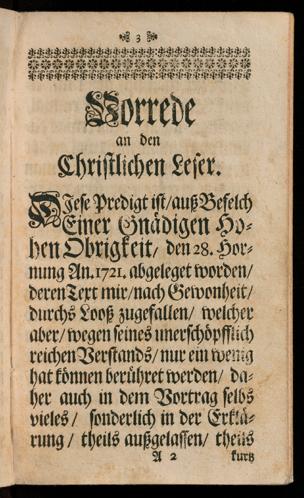 3
Vorrede
an den
Christlichen Leser.
DJese Predigt ist/auß Befelch
Einer Gnädigen Ho-
hen Obrigkeit/ den 28. Hor-
nung An. 1721. abgeleget worden/
deren Text mir/nach Gewonheit/
durchs Looß zugefallen/ welcher
aber/ wegen seines unerschöpfflich
reichen Verstands/ nur ein wenig
hat können berühret werden/ da-
her auch in dem Vortrag selbs
vieles/ sonderlich in der Erklä-
rung/ theils außgelassen/ theils
A 2 kurtz